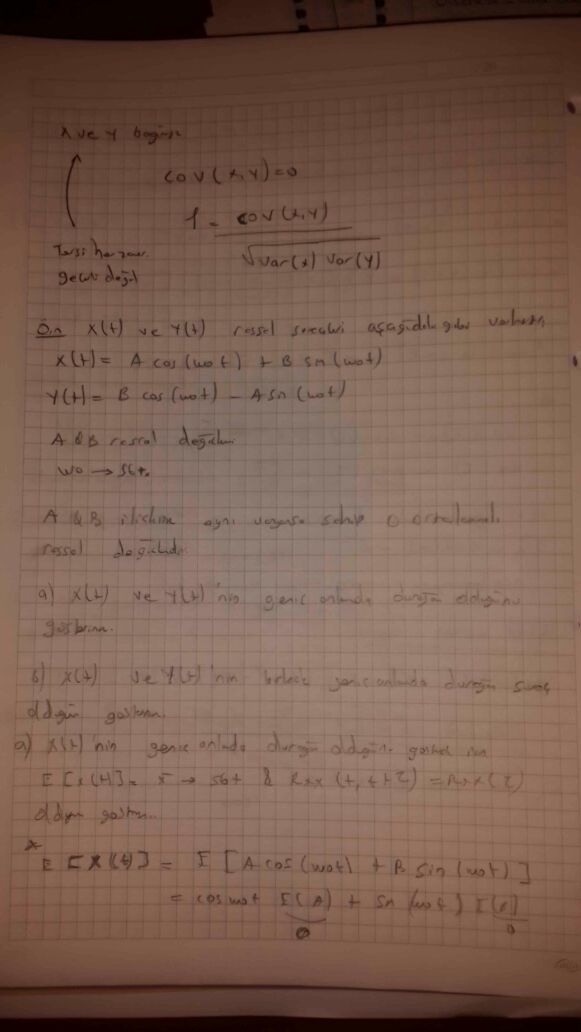 X ve Y bağımsız
cov(x,y)=0
1 = cov(x,y)
√var(x) var(y)
Tersi her zaman
geçerli değil
Ön X(t) ve Y(t) rassal süreçleri aşağıdaki gibi
X(t) = A cos(wot) + B sin(wot)
Y(t) = B cos(wot) - A sin(wot)
A & B rassal değişken
wo → sbt.
A & B ilişkisiz aynı varyansa sahip 0 ortalamalı
rassal
a) X(t) ve Y(t) 'nin geniş anlamda durağan olduğunu
gösterin.
b) X(t) ve Y(t) 'nin geniş anlamda durağan süreç
olduğun gösterin.
a) X(t) 'nin geniş anlamda durağan olduğunu
E[X(t)] = x̄ → sbt & Rxx(t, t+τ) = Rxx(τ)
olduğun
* E[X(t)] = E[A cos(wot) + B sin(wot)]
= cos wot E(A) + sn(wot) E[B]
0 0